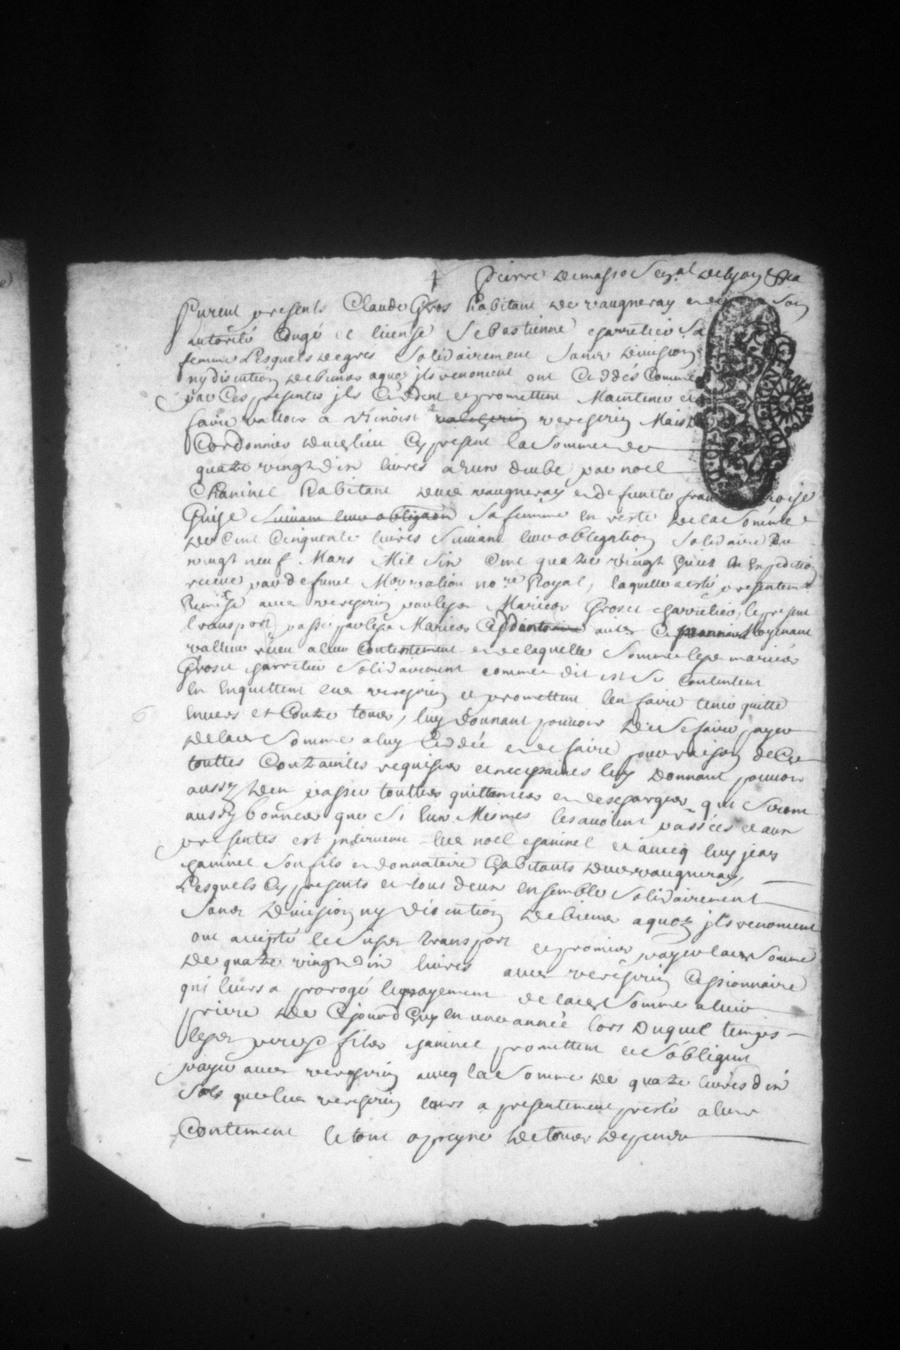 Pierre
furent presents Claude Gros habitant de vaugneray et de a son
autorité Congé et license Sebastienne charretier sa
femme Lesquels de gres solidairement sans division
ny discution de biens aquoy ils renoncent ont Ceddés Comme
par Ces presentes ils Ceddent et promettent Maintenir et
faire valloir à Vincent vereyrin Maistre
Cordonnier dudit lieu Cy present la Somme de
quatre vingt dix livres a eux deube par noel
Chaninel habitant dudit vaugneray et defuncte françoise
Guise suivant leur obligaon sa femme en reste de la Somme
de Cent Cinquante livres suivant leur obligation solidaire du
vingt neuf Mars Mil Six Cent quatre vingt expedition
receue par defunt Me no.re Royal, laquelle a esté presentement
Remise audit vereyrin par lesd Maries Gros et charretier, le present
transport passé par lesd Maries audit Moyenant
valleur receu a leur Contentement et de laquelle Somme lesd mariés
Gros et charretier solidairement comme dit est se Contentent
en Enquittent led vereyrin et promettent l'en faire tenir quitte
envers et Contre tous, luy donnant pouvoir de se faire payer
de lad Somme a luy Ceddée et de faire pour raison de Ce
touttes Contraintes requises et necessaires luy donnant pouvoir
aussy d'en passer touttes quittances et descharges qui seront
aussy bonnes que si Eux Mesmes les avoient passées et aux
presentes est intervenu led noel chaninel et avecq luy jean
chaninel son fils et donnataire habitants dudit vaugneray
Lesquels Cy presents et tous deux ensemble solidairement
sans division ny discution de biens aquoy ils renoncent
ont accepté le susd transport et promis payer lad Somme
de quatre vingt dix livres audit vereyrin Cessionnaire
qui leurs a prorogé le payement de lad Somme a leur
priere de Cejourd'huy en une année lors duquel temps
lesd pere et fils chaninel promettent et s'obligent
payer audit vereyrin avecq la Somme de quatre livres dix
sols que led vereyrin leurs a presentement presté a leur
Contement le tout a peyne de tous despens